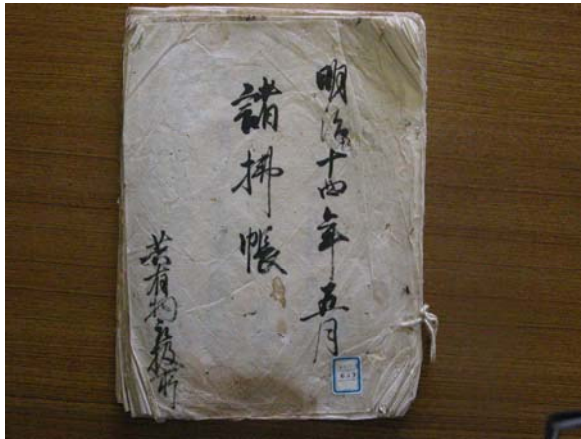 明治十四年五月
諸拂帳
共有物取扱所